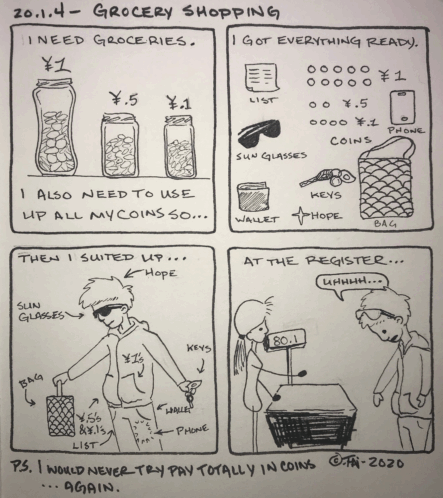 20.1.4 - GROCERY SHOPPING
I NEED GROCERIES.
¥1
¥.5
¥.1
I ALSO NEED TO USE
UP ALL MY COINS SO...
I GOT EVERYTHING READY.
LIST
¥1
¥.5
¥.1
COINS
PHONE
SUN GLASSES
WALLET
KEYS
HOPE
BAG
THEN I SUITED UP...
HOPE
SUN
GLASSES
¥1's
KEYS
BAG
¥.5's
& ¥.1's
LIST
WALLET
PHONE
AT THE REGISTER...
UHHHH...
80.1
P.S. I WOULD NEVER TRY PAY TOTALLY IN COINS
... AGAIN.
2020